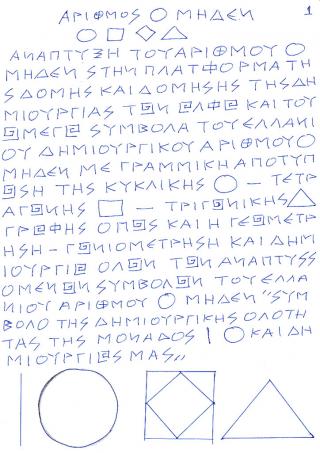 1
ΑΡΙΘΜΟΣ Ο ΜΗΔΕΝ
ΑΝΑΠΤΥΞΗ ΤΟΥ ΑΡΙΘΜΟΥ Ο
ΜΗΔΕΝ ΣΤΗΝ ΠΛΑΤΦΟΡΜΑ ΤΗ
Σ ΔΟΜΗΣ ΚΑΙ ΔΟΜΗΣΗΣ ΤΗΣ ΔΗ
ΜΙΟΥΡΓΙΑΣ ΤΩΝ ΑΛΦΑ ΚΑΙ ΤΟΥ
ΩΜΕΓΑ ΣΥΜΒΟΛΑ ΤΟΥ ΕΛΛΑΝΙ
ΟΥ ΔΗΜΙΟΥΡΓΙΚΟΥ ΑΡΙΘΜΟΥ Ο
ΜΗΔΕΝ ΜΕ ΓΡΑΜΜΙΚΗ ΑΠΟΤΥΠ
ΩΣΗ ΤΗΣ ΚΥΚΛΙΚΗΣ Ο — ΤΕΤΡ
ΑΓΩΝΗΣ □ — ΤΡΙΓΩΝΙΚΗΣ △
ΓΡΑΦΗΣ ΟΠΩΣ ΚΑΙ Η ΓΕΩΜΕΤΡ
ΗΣΗ – ΓΩΝΙΟΜΕΤΡΗΣΗ ΚΑΙ ΔΗΜ
ΙΟΥΡΓΙΑ ΟΛΩΝ ΤΩΝ ΑΝΑΠΤΥΣΣ
ΟΜΕΝΩΝ ΣΥΜΒΟΛΩΝ ΤΟΥ ΕΛΛΑ
ΝΙΟΥ ΑΡΙΘΜΟΥ Ο ΜΗΔΕΝ "ΣΥΜ
ΒΟΛΟ ΤΗΣ ΔΗΜΙΟΥΡΓΙΚΗΣ ΟΛΟΤΗ
ΤΑΣ ΤΗΣ ΜΟΝΑΔΟΣ | Ο ΚΑΙ ΔΗ
ΜΙΟΥΡΓΙΑΣ ΜΑΣ,,